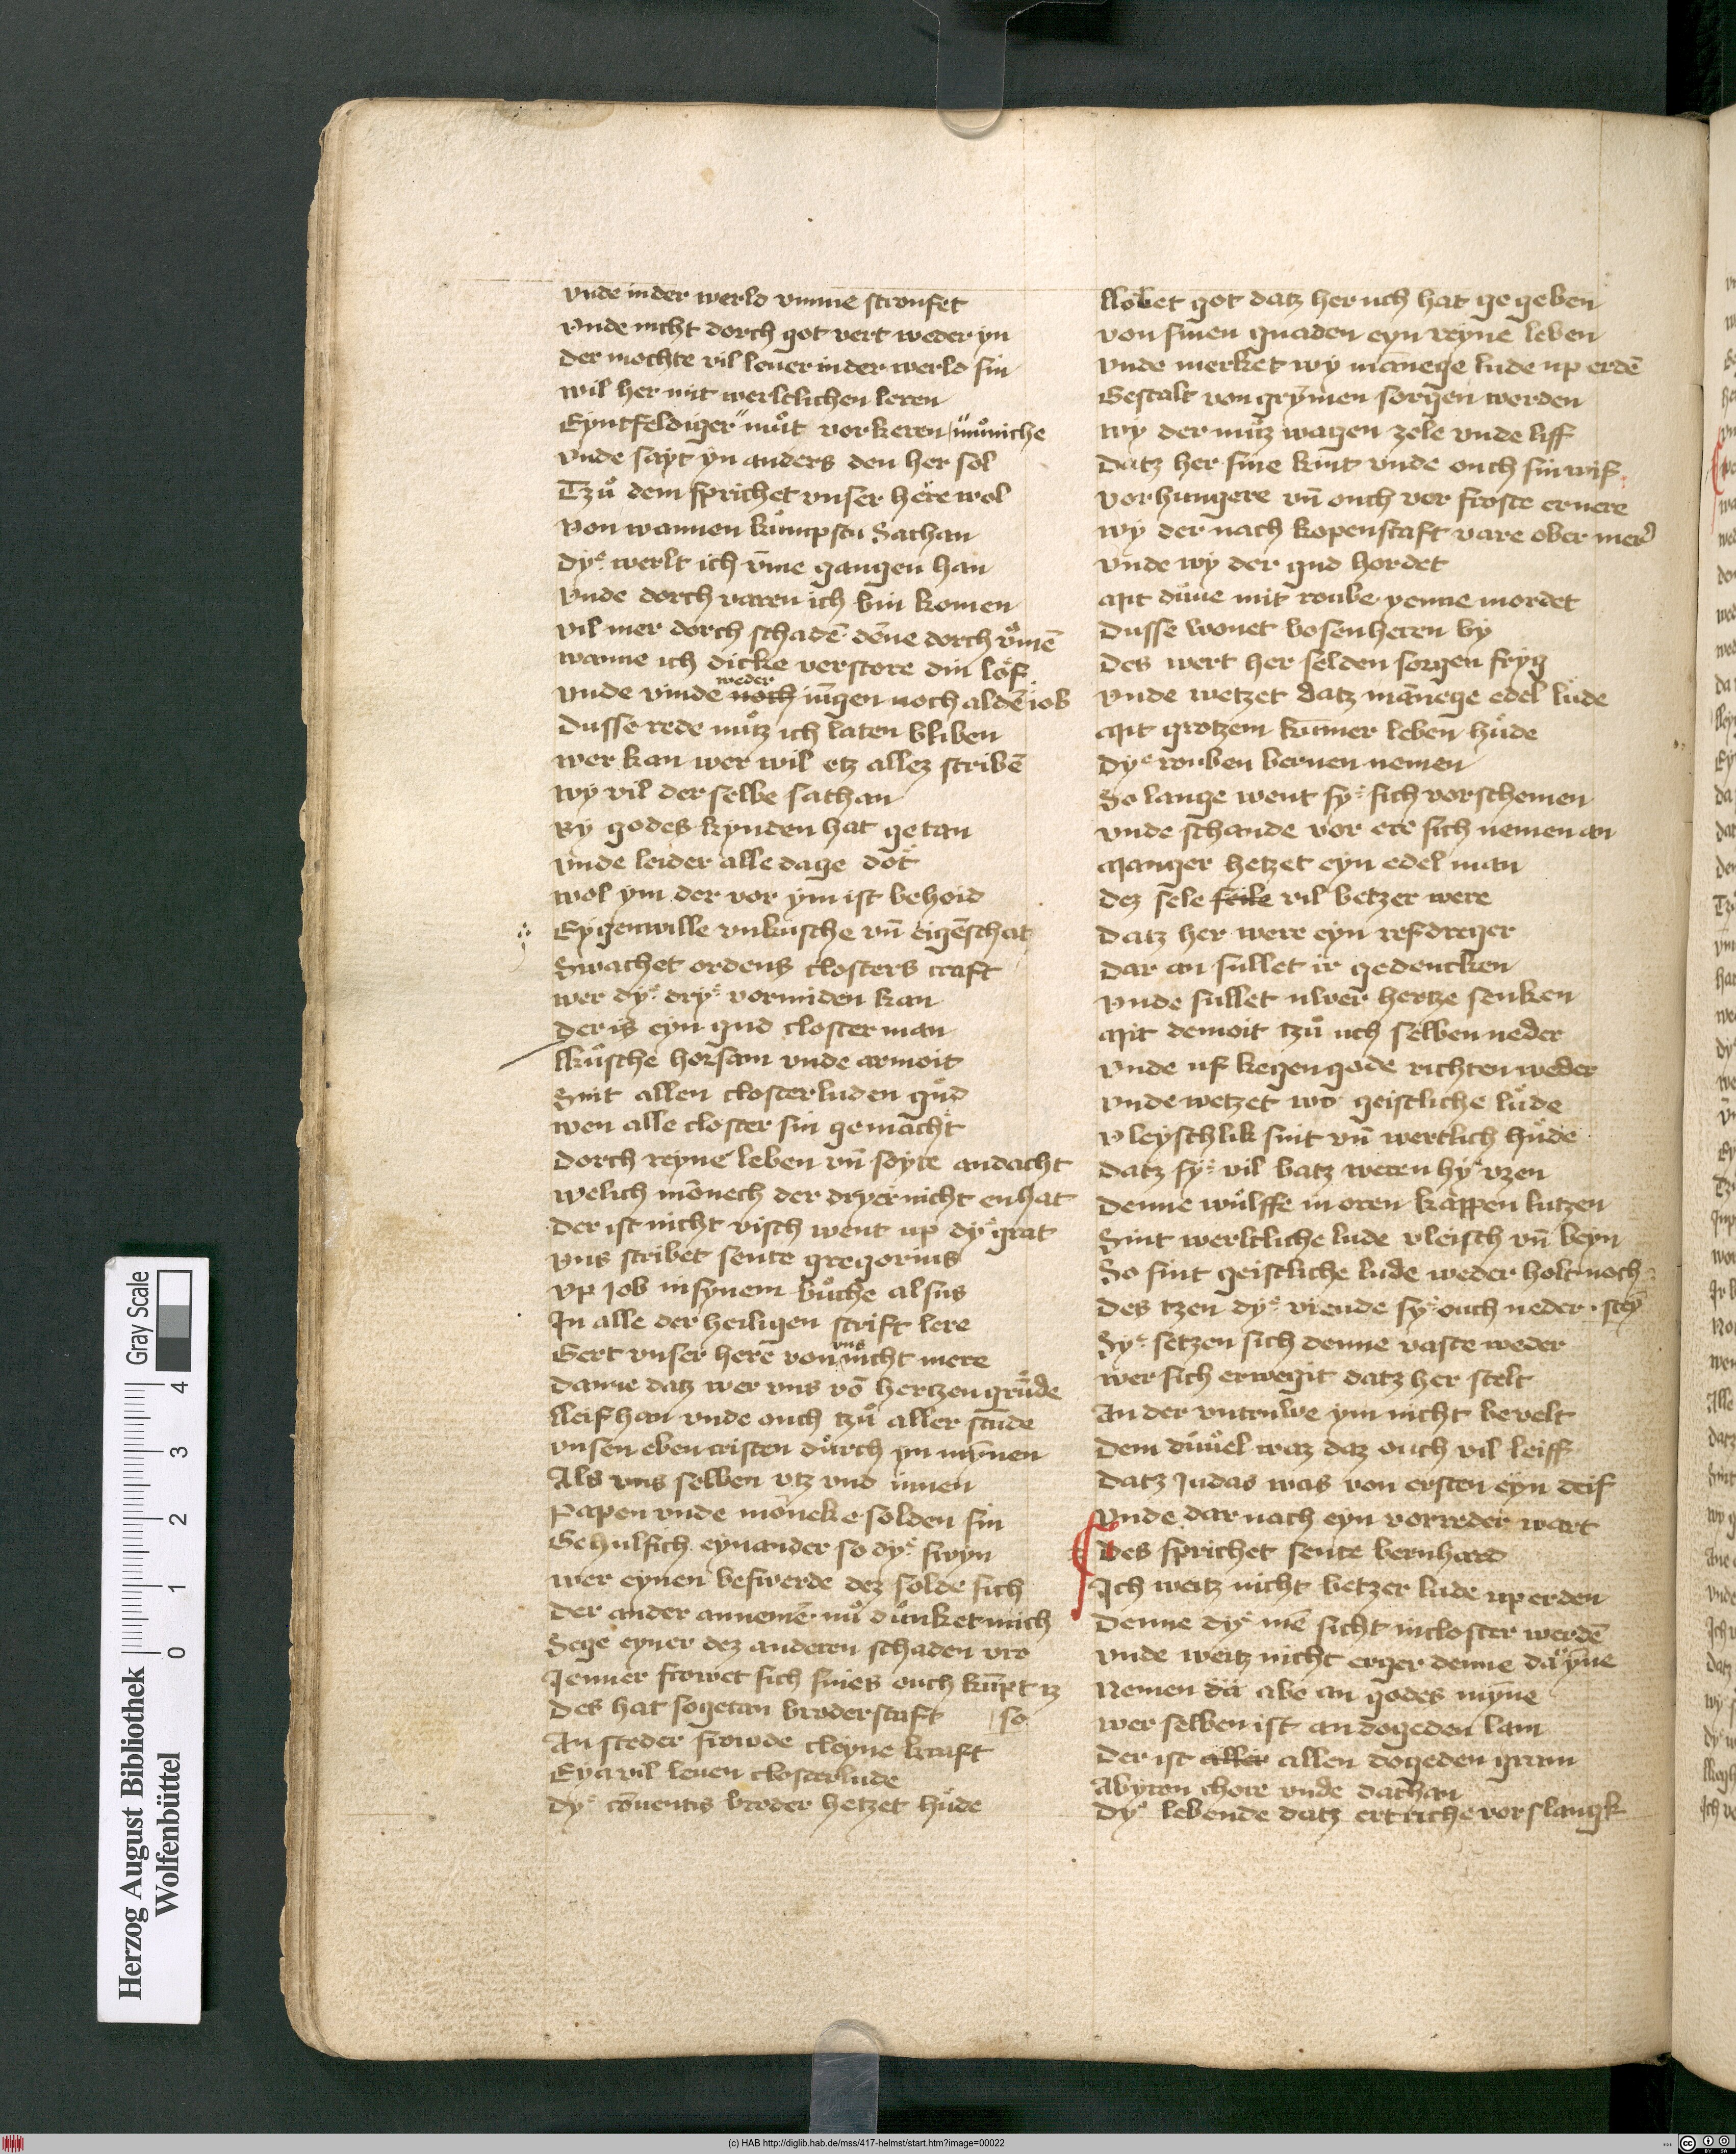 vnde in der werld vmme stroufet
vnde nicht dorch got vert weder yn
der mochte vil leuer in der werld sin
wil her mit werltlichen leren
Eyntfeldiger můt vorkeren múniche
vnde sayt yn anders den her sol
Tzů dem sprichet vnser here wol
von wannen kůmpstu Sathan
dyͤ werlt ich v̄me gangen han
vnde dorch varen ich bin komen
vil mer dorch schadē dēne dorch vromē
wanne ich dicke verstore din lof
vnde vinde noch weder iūgen noch aldē iob
Dusse rede můtz ich laten bliben
wer kan wer wil etz allez stribē
wy vil der selbe sathan
By godes kynden hat getan
vnde leider alle dage dot
wol ym der vor ym ist behoid
Eygenwille vnkusche vn̄ eigēschat
Swachet ordens closters craft
wer dyͤ dryͤ vormiden kan
der is eyn gud closter man
kůsche horsam vnde armoit
Sint allen closterluden gůd
wen alle closter sin gemacht
dorch reyne leben vn̄ soyte andacht
welich mōnech der dryer nicht en hat
der ist nicht visch went up dyͤ grat
vns stribet sente gregorius
vp Job in synem bůche alsus
In alle der heiligen strift lere
Gert vnser herē von vns nicht mere
danne datz wer vns vō hertzen grůde
lleif han vnde ouch tzů aller stūde
vnsen eben cristen důrch yn mȳnen
Als vns selben vtz vnd innen
Papen vnde moneke solden sin
Gehulfich eynander so dyͤ swyn
wer eynen beswerde dez solde sich
der ander annemē nů důnket mich
Sege eyner dez anderen schaden vro
Jenner frowet sich sines ouch kūpt iz
Des hat sogetan broderstaft so
An steder frowde cleyne kraft
Eya vil leuen closterlude
dyͤ cōuentis broder hetzet hůde
llobet got datz her uch hat ge geben
von sinen gnaden eyn reyne leben
vnde merket wy mānege lude up erdē
Gestalt von grȳmen sorgen werden
wy der můtz wagen zele vnde liff
Datz her sine kint vnde ouch sin wif
vorhungere vn̄ ouch vor froste ernere
wy der nach kopenstaft vare ober mer
vnde wy der gud hordet
Mit důue mit roube yenne mordet
Dusse wonet bosen heren by
Des wert her selden sorgen fryg
vnde wetzet datz mānege edel lůde
Mit grotzem kūmer leben hůde
Dyͤ rouben bernen nemen
So lange went syͤ sich vorschemen
vnde schande vor ere sich nemen an
Manger hetzet eyn edel man
dez sele feile vil betzer were
Datz her were eyn refdreger
dar an sullet ir gedencken
vnde sullet uwer hertze senken
Mit demoit tzů uch selben neder
vnde uf kegen gode richten weder
vnde wetzet wo geistliche lůde
vleyschlik sint vn̄ wertlich hůde
datz syͤ vil batz weren hyͤ vzen
Denne wůlffe in oren kappen lutzen
Sint werltliche lude vleisch vn̄ beyn
So sint geistliche lude weder holt noch
Des tzen dyͤ viende syͤ ouch neder · stey
Syͤ setzen sich denne vaste weder
wer sich erwegit datz her stelt
An der vntruwe ym nicht bevelt
Dem důuel waz daz ouch vil leiff
Datz Judas was von ersten eyn deif
vnde dar nach eyn vorreder wart
Des sprichet sente bernhard
Ich weitz nicht betzer lude up erden
Denne dyͤ mē sicht in closter werdē
vnde weitz nicht erger denne da ynne
Nemen da abe an godes mȳne
wer selben ist an dogeden lam
Der ist aller allen dogeden gram
Abyron chore vnde dathan
dyͤ lebende datz ertriche vorslangk
Herzog August Bibliothek
Wolfenbüttel
Gray Scale
0 1 2 3 4
(c) HAB http://diglib.hab.de/mss/417-helmst/start.htm?image=00022